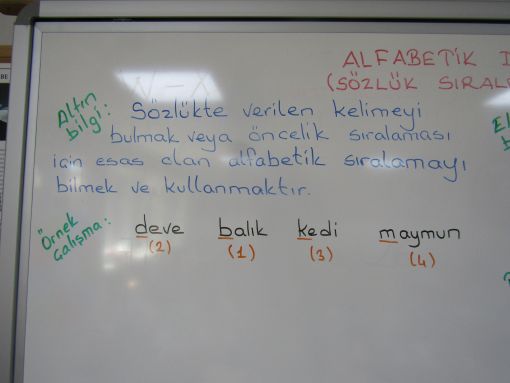 ALFABETİK
(SÖZLÜK SIRALA
Altın bilgi:
Sözlükte verilen kelimeyi
bulmak veya öncelik sıralaması
için esas olan alfabetik sıralamayı
bilmek ve kullanmaktır.
Örnek Çalışma:
deve balık kedi maymun
(2) (1) (3) (4)